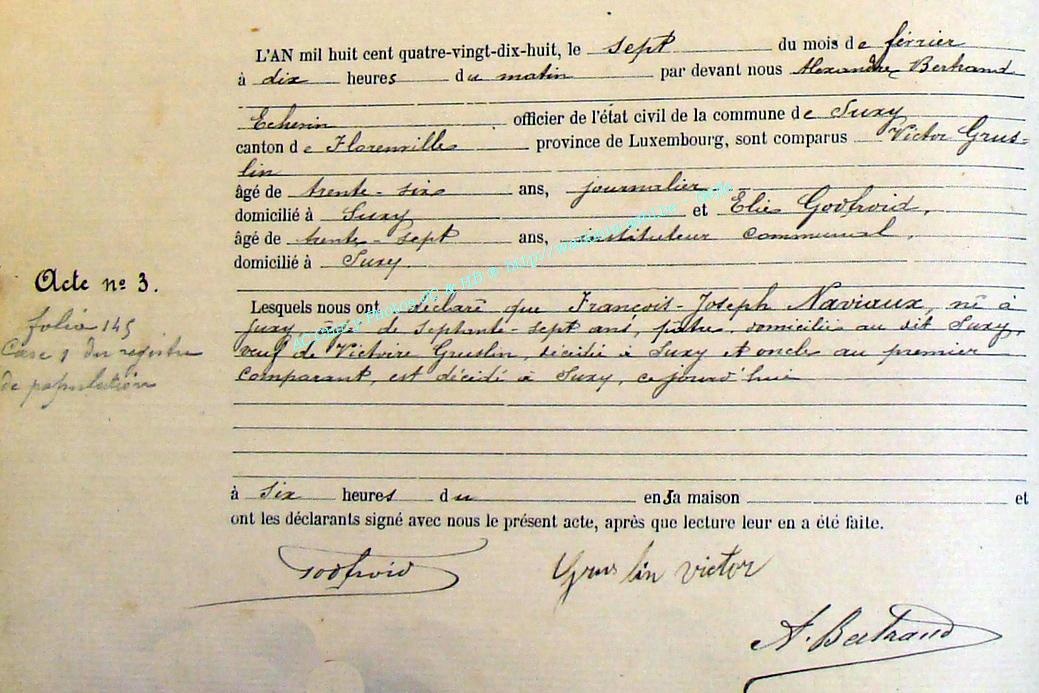 L'AN mil huit cent quatre-vingt-dix-huit, le sept du mois de février
à dix heures du matin par devant nous Alexandre Bertrand
Echevin officier de l'état civil de la commune de Suxy
canton de Florenville province de Luxembourg, sont comparus Victor Grus-
lin
âgé de trente-six ans, journalier
domicilié à Suxy et Elie Godfroid,
âgé de trente-sept ans, instituteur communal,
domicilié à Suxy.
Acte nº 3.
folio 145
Case 1 du registre
de population
Lesquels nous ont déclaré que François-Joseph Naviaux, né à
Suxy, âgé de septante-sept ans, pâtre, domicilié au dit Suxy,
veuf de Victoire Gruslin, décédée à Suxy et oncle au premier
comparant, est décédé à Suxy, ce jourd'hui
à six heures du en sa maison et
ont les déclarants signé avec nous le présent acte, après que lecture leur en a été faite.
Godfroid Gruslin victor
A. Bertrand